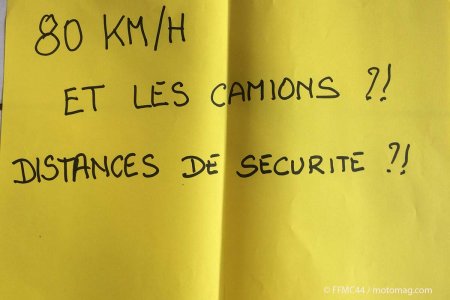 80 KM/H
ET LES CAMIONS ?!
DISTANCES DE SECURITE ?!
© FFMC44 / motomag.com